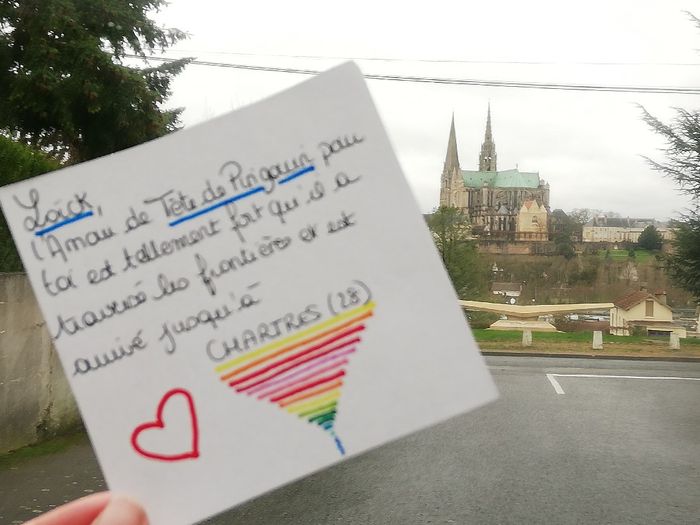 Loïck,
l'Amour de Tête de Pingouin pour
toi est tellement fort qu'il a
traversé les frontières et est
arrivé jusqu'à
CHARTRES (28)